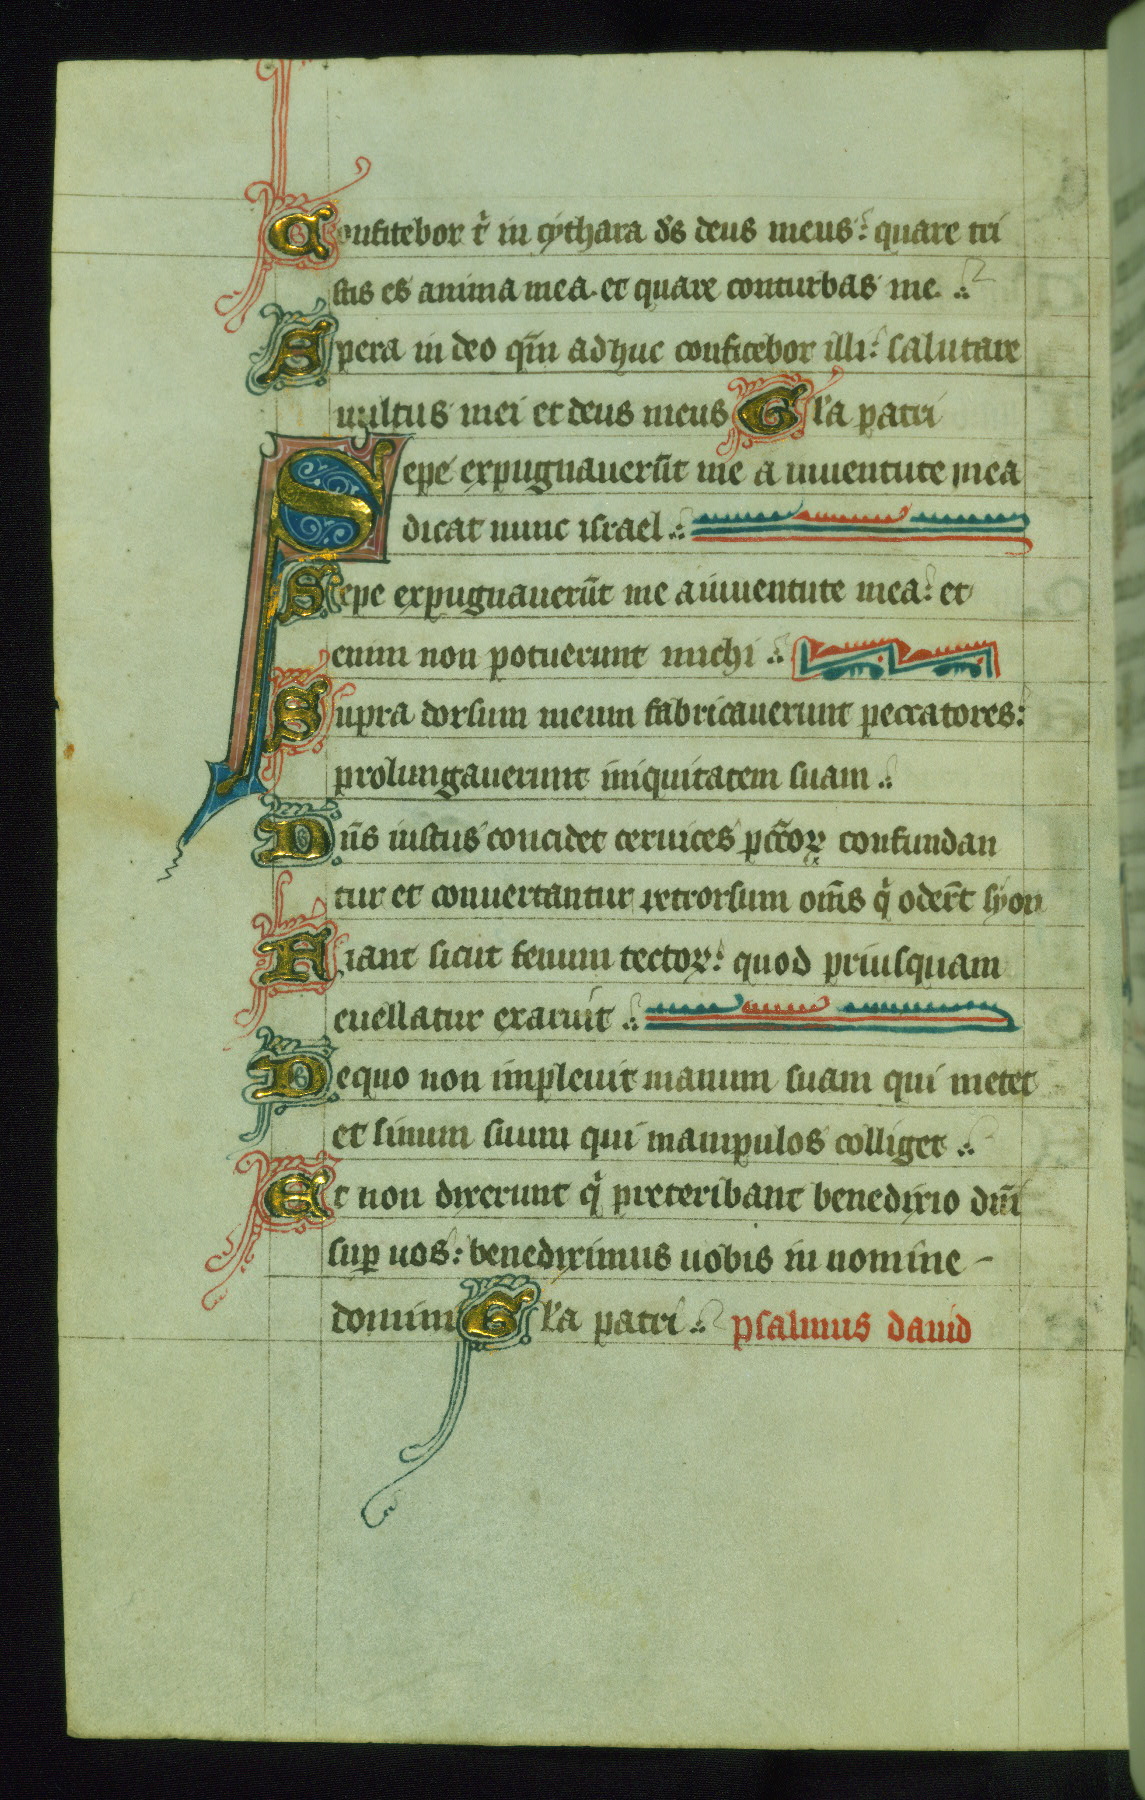 Confitebor t̉ in cythara ds̄ deus meus: quare tri
stis es anima mea. et quare conturbas me.
Spera in deo qm̄ adhuc confitebor illi: salutare
uultus mei et deus meus Gl'a patri
Sepe expugnauerūt me a iuuentute mea
dicat nunc israel.
Sepe expugnauerūt me a iuuentute mea: et
enim non potuerunt michi.
Supra dorsum meum fabricauerunt peccatores:
prolungauerunt iniquitatem suam.
Dn̄s iustus concidet ceruices pcc̄oꝝ confundan
tur et conuertantur retrorsum om̄s q̉ oder̄t syon
Fiant sicut fenum tectoꝝ: quod priusquam
euellatur exaruit.
Dequo non impleuit manum suam qui metet
et sinum suum qui manipulos colliget.
Et non dixerunt q̉ preteribant benedixio dn̄i
sup̱ uos: benediximus uobis in nomine -
domini Gl'a patri. psalmus dauid